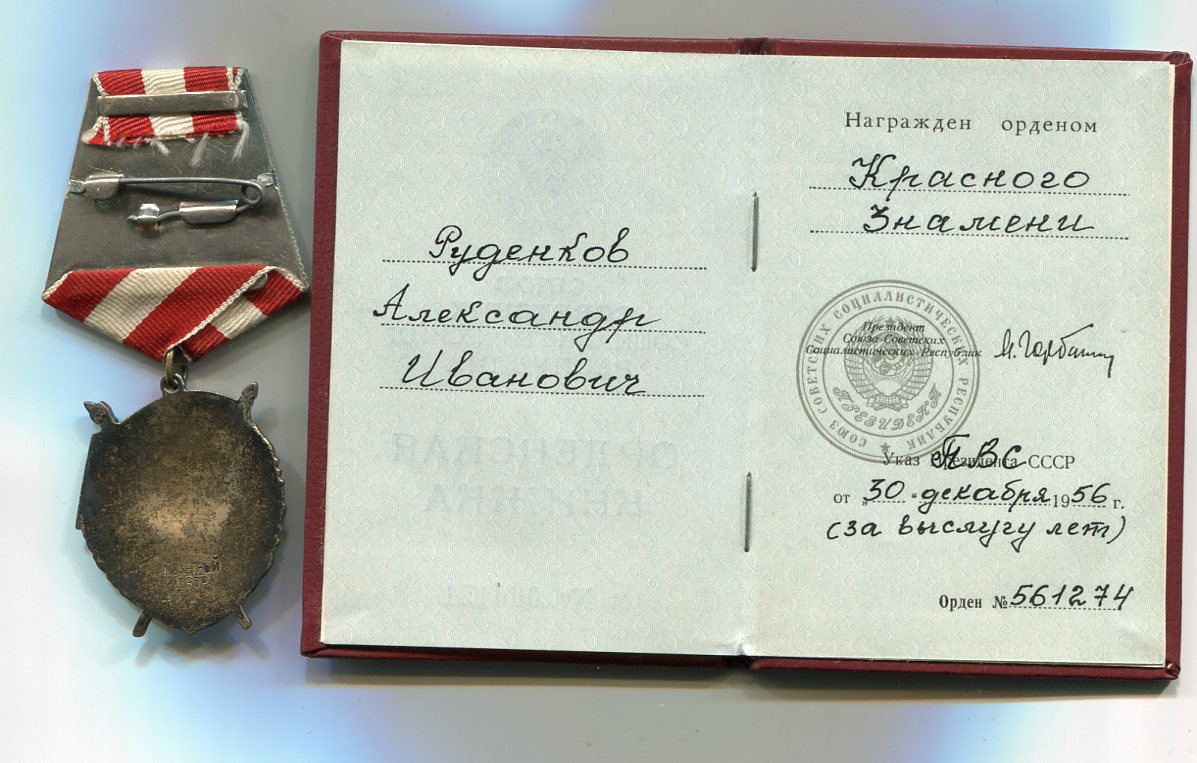 Руденков
Александр
Иванович
Награжден орденом
Красного
Знамени
СОЮЗ СОВЕТСКИХ СОЦИАЛИСТИЧЕСКИХ РЕСПУБЛИК
ПРЕЗИДЕНТ
Президент
Союза Советских
Социалистических Республик
М. Горбачев
Указ Президента СССР
ПВС
от „30“ декабря 1956 г.
(за выслугу лет)
Орден № 561274